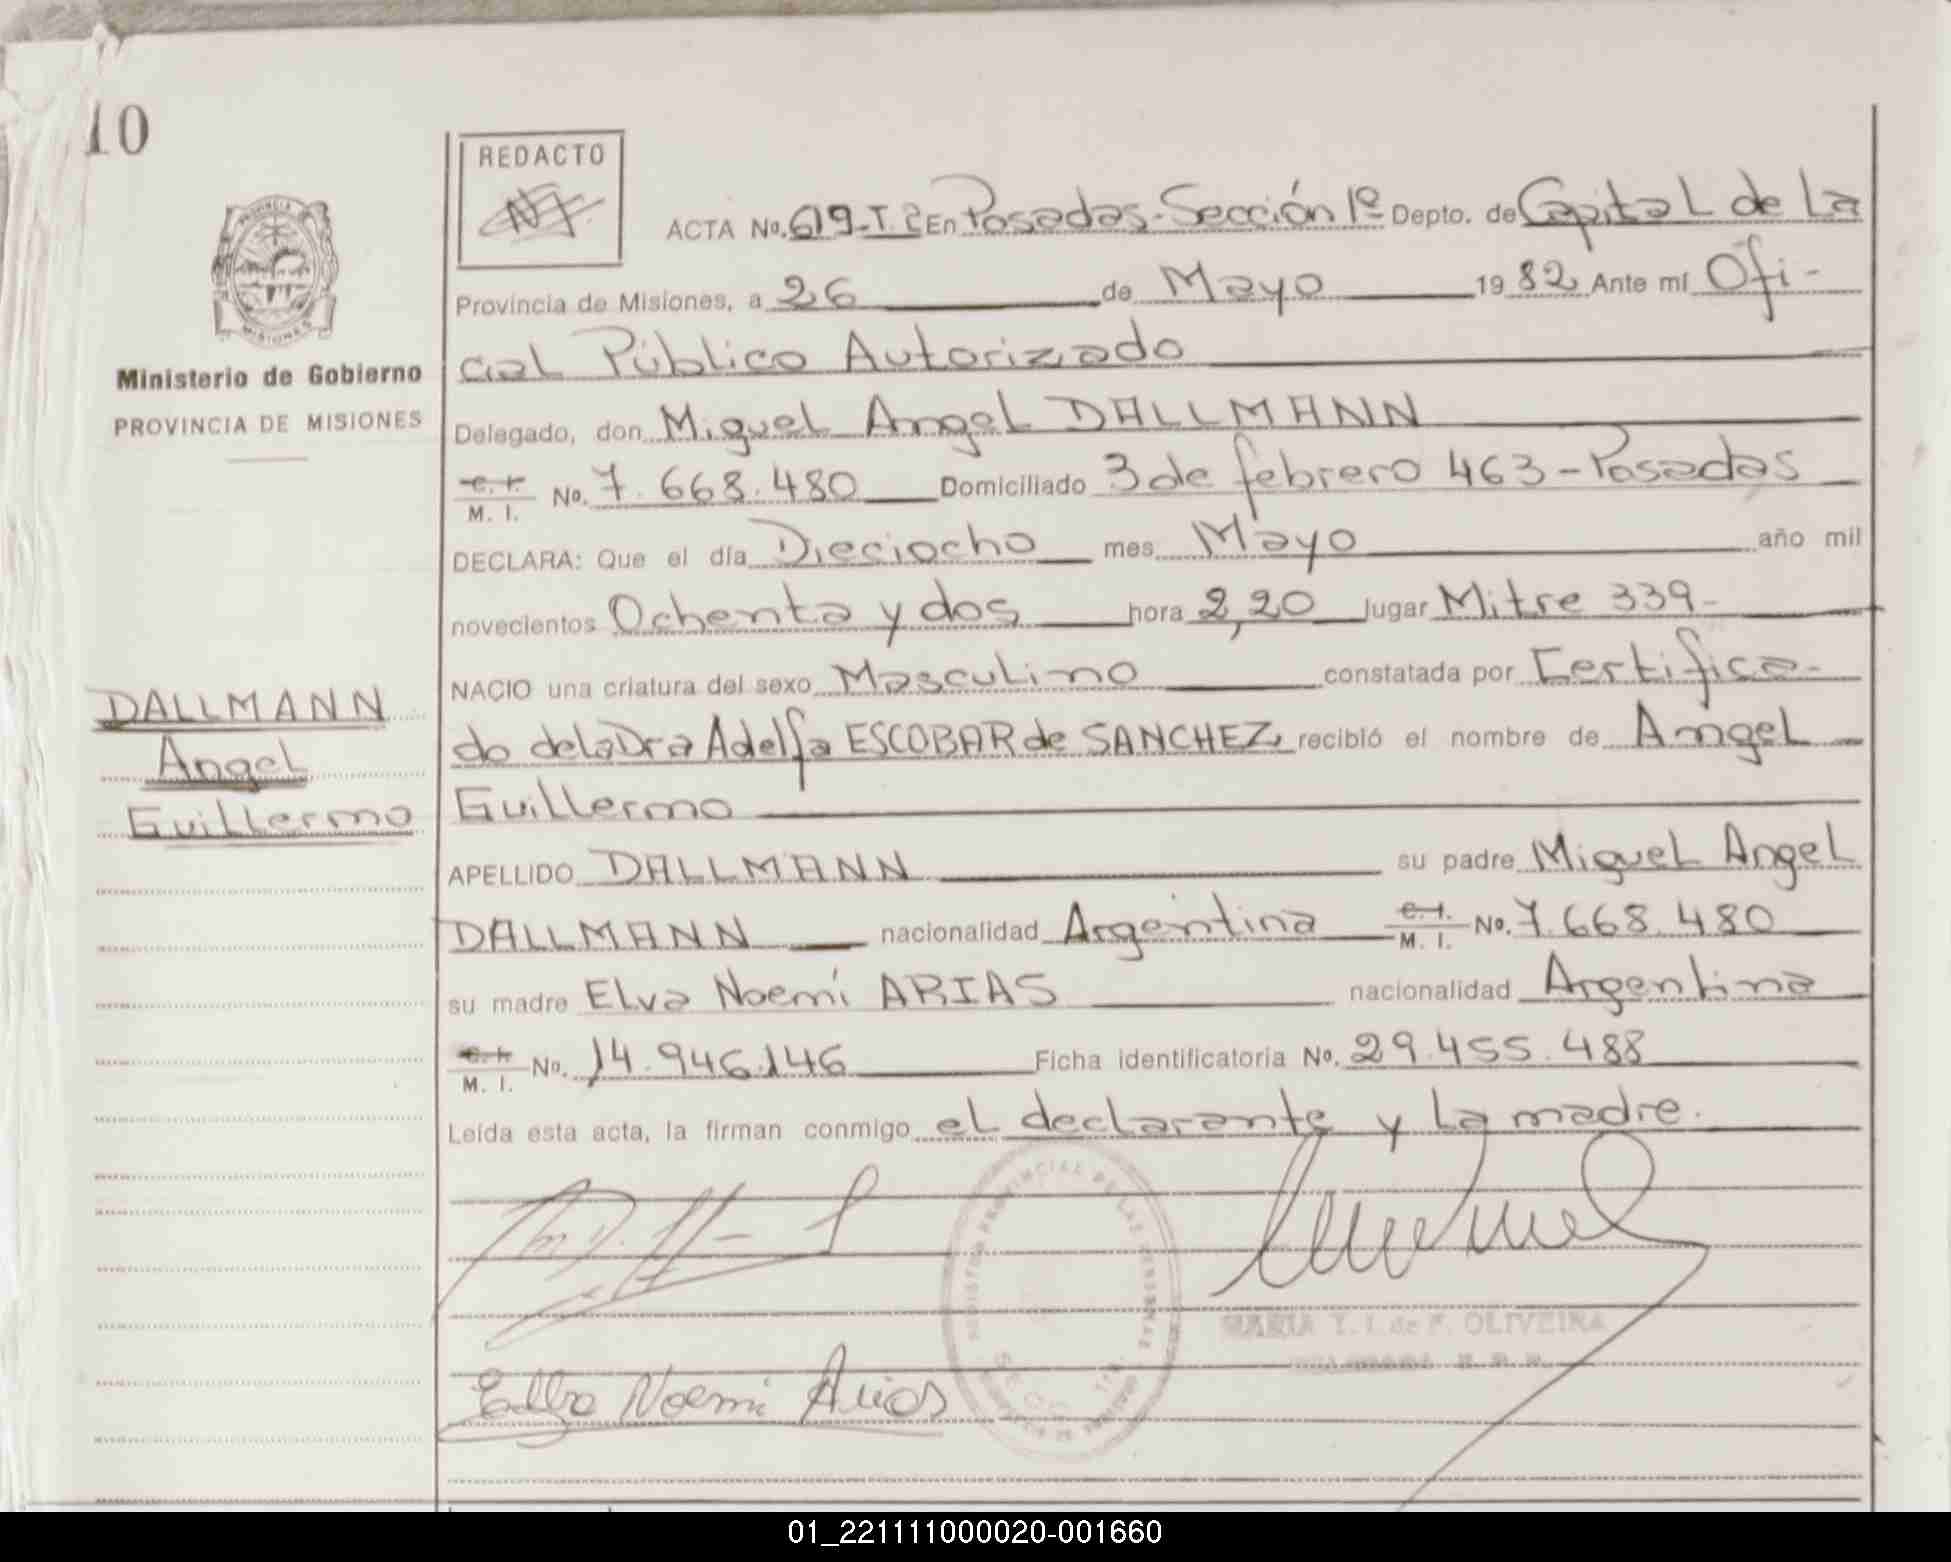 10
REDACTO
PROVINCIA DE
MISIONES
Ministerio de Gobierno
PROVINCIA DE MISIONES
DALLMANN
Angel
Guillermo
ACTA No. 619-T.2 En Posadas-Sección 1º Depto. de Capital de La
Provincia de Misiones, a 26 de Mayo 1982 Ante mí Ofi-
cial Público Autorizado
Delegado, don Miguel Angel DALLMANN
C. I. M. I. No. 7.668.480 Domiciliado 3 de febrero 463-Posadas
DECLARA: Que el día Dieciocho mes Mayo año mil
novecientos Ochenta y dos hora 2,20 lugar Mitre 339-
NACIO una criatura del sexo Masculino constatada por Certifica-
do de la Dra Adelfa ESCOBAR de SANCHEZ, recibió el nombre de Angel
Guillermo
APELLIDO DALLMANN su padre Miguel Angel
DALLMANN nacionalidad Argentina C. I. M. I. No. 7.668.480
su madre Elva Noemí ARIAS nacionalidad Argentina
C. I. M. I. No. 14.946.146 Ficha identificatoria No. 29.455.488
Leída esta acta, la firman conmigo el declarante y la madre.
REGISTRO PROVINCIAL DE LAS PERSONAS
MARIA T. I. de F. OLIVEIRA
Elba Noemi Arias
01_221111000020-001660